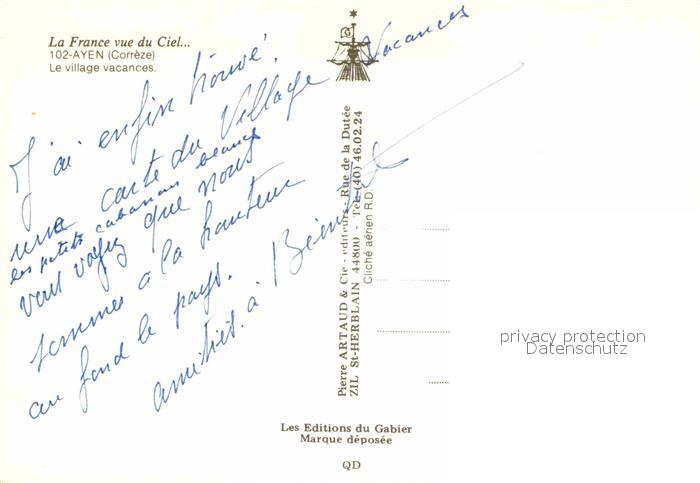 La France vue du Ciel...
102-AYEN (Corrèze)
Le village vacances.
J'ai enfin trouvé
une carte du Village Vacances
les petits cabanons
vous voyez que nous
sommes à la hauteur
au fond le pays.
amitiés. à
Pierre ARTAUD & Cie - editeurs - Rue de la Dutée
ZIL St-HERBLAIN 44800 - Tel. (40) 46.02.24
Cliché aérien R.D.
privacy protection
Datenschutz
Les Editions du Gabier
Marque déposée
QD